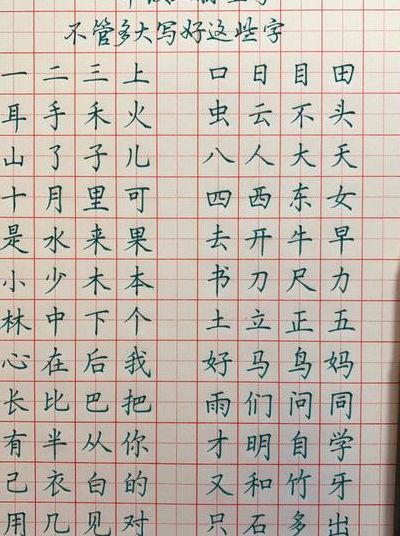 不管多大写好这些字
一二三上 口日目田
耳手禾火 虫云不头
山了子儿 八人大天
十月里可 四西东女
是水来果 去开牛早
小少木本 书刀尺力
林中下个 土立正五
心在后我 好马鸟妈
长比巴把 雨们问同
有半从你 才明自学
己衣白的 又和竹牙
用几见对 只石多出